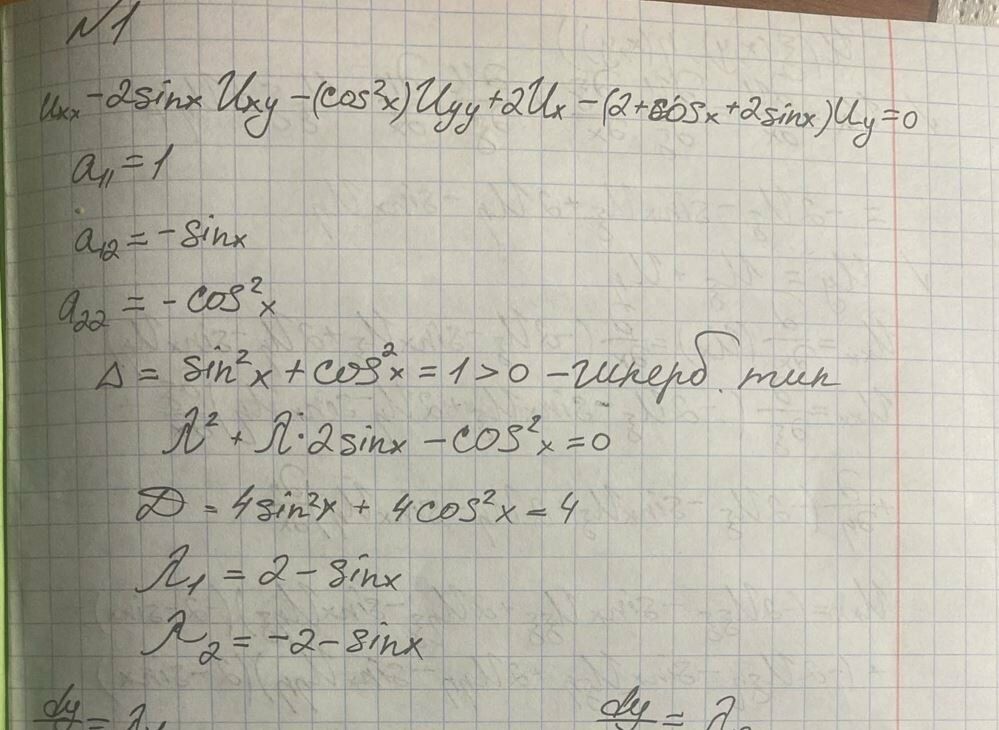 №1
Uxx - 2sinx Uxy - (cos²x) Uyy + 2Ux - (2+cosx + 2sinx) Uy = 0
a₁₁ = 1
a₁₂ = - sinx
a₂₂ = - cos²x
Δ = sin²x + cos²x = 1 > 0 - гиперб. тип
λ² + λ·2sinx - cos²x = 0
D = 4sin²x + 4cos²x = 4
λ₁ = 2 - sinx
λ₂ = -2 - sinx
dy = λ₁ dy = λ₂